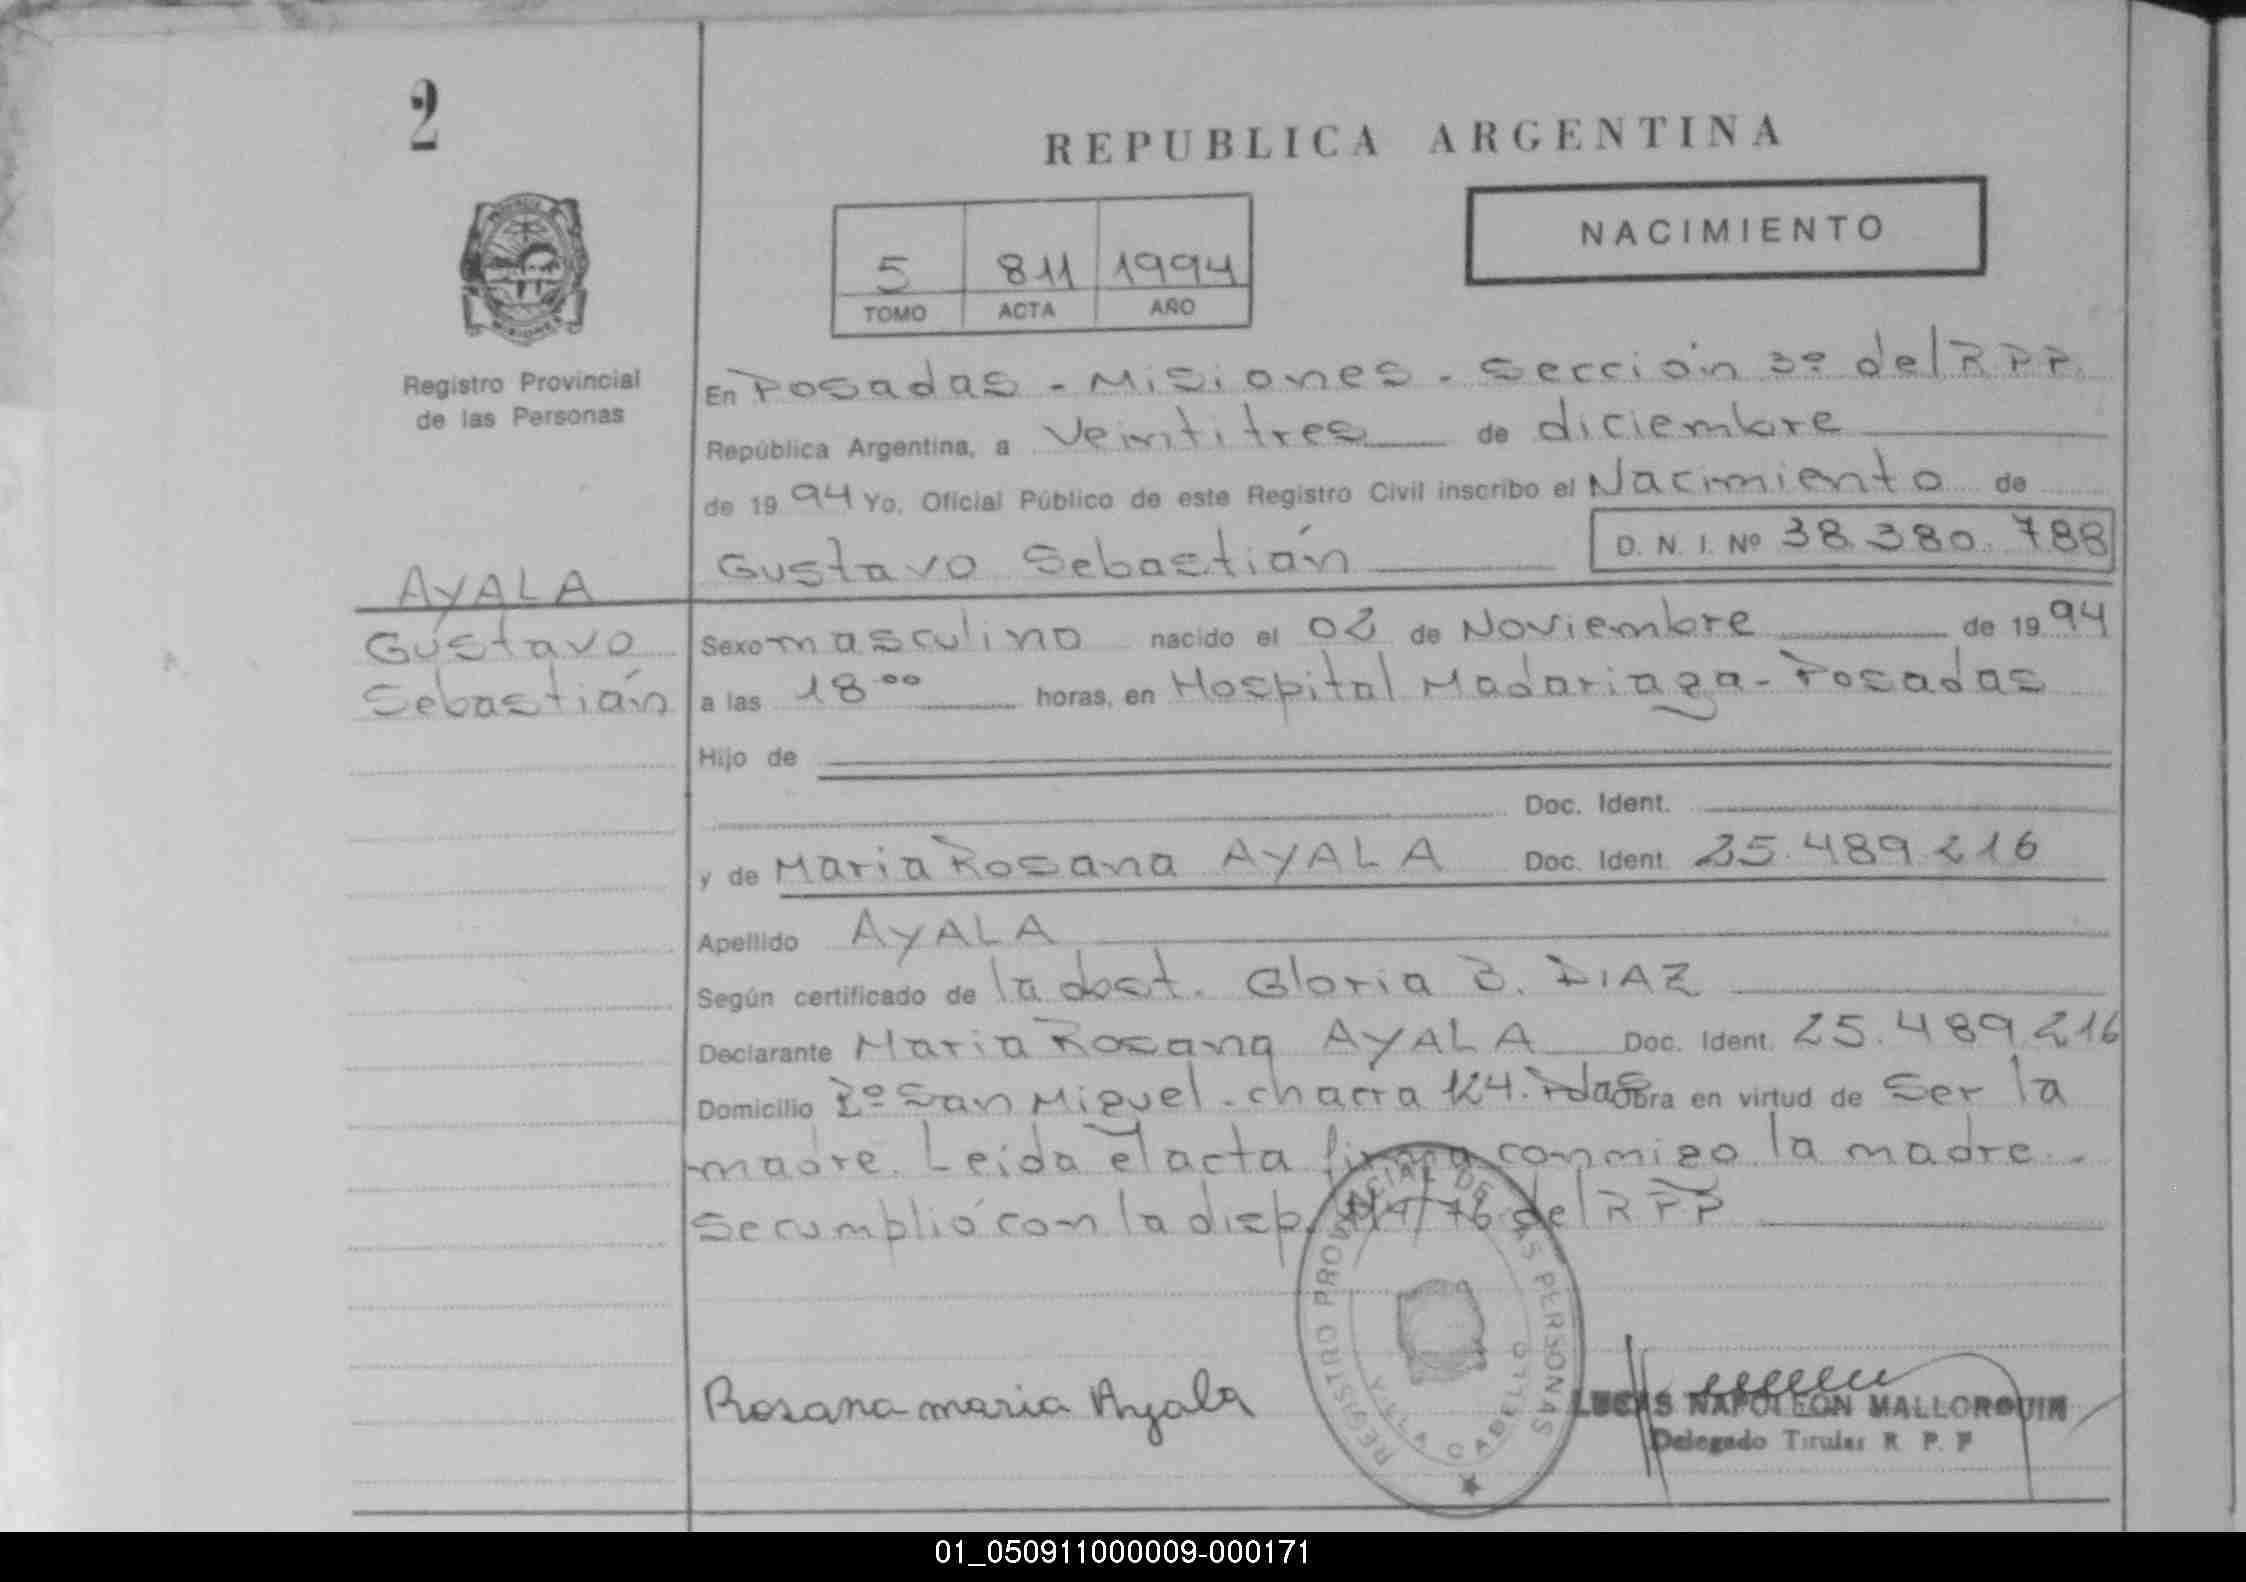 2
REPUBLICA ARGENTINA
NACIMIENTO
5 811 1994
TOMO ACTA AÑO
Registro Provincial
de las Personas
En Posadas - Misiones - Sección 3º del R P P.
República Argentina, a Veintitres de diciembre
de 1994 Yo, Oficial Público de este Registro Civil inscribo el Nacimiento de
Gustavo Sebastián D. N. I. Nº 38.380.788
AYALA
Gustavo
Sebastián
Sexo masculino nacido el 02 de Noviembre de 1994
a las 18 00 horas, en Hospital Madariaga - Posadas
Hijo de
Doc. Ident.
y de Maria Rosana AYALA Doc. Ident. 25.489.216
Apellido AYALA
Según certificado de la obst. Gloria B. DIAZ
Declarante Maria Rosana AYALA Doc. Ident. 25.489.216
Domicilio Bº San Miguel - chacra 124. Pdas Obra en virtud de Ser la
madre. Leida el acta firma conmigo la madre.-
Se cumplió con la disp. /76 del R P P
REGISTRO PROVINCIAL DE LAS PERSONAS
VILLA CABELLO
Rosana maria Ayala
LUCAS NAPOLEON MALLORQUIN
Delegado Titular R. P. P
01_050911000009-000171